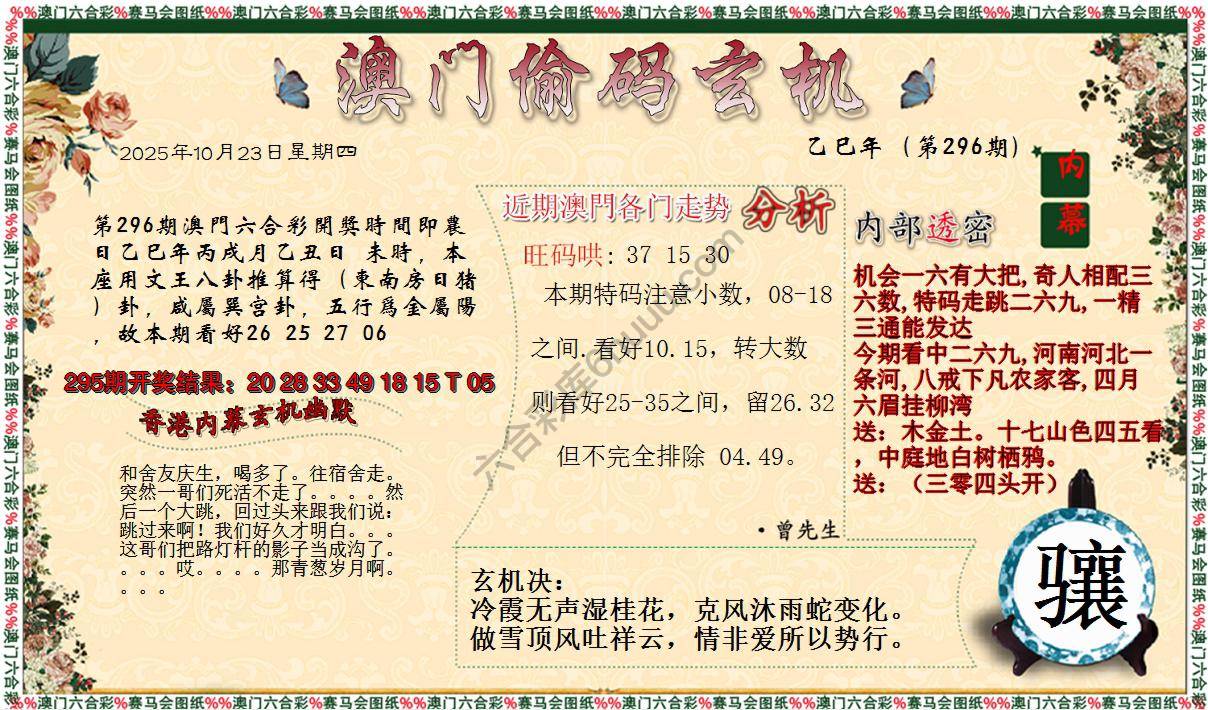 %%澳门六合彩%赛马会图纸%%澳门六合彩%赛马会图纸%%澳门六合彩%赛马会图纸%%澳门六合彩%赛马会图纸%%澳门六合彩%赛马会图纸%%澳门六合彩%赛马会图纸%%
澳门偷码玄机
2025年10月23日星期四
乙巳年（第296期）
内幕
第296期澳門六合彩開獎時間即農
日乙巳年丙戌月乙丑日 未時，本
座用文王八卦推算得（東南房日猪
）卦，咸屬巽宫卦，五行爲金屬陽
，故本期看好26 25 27 06
295期开奖结果：20 28 33 49 18 15 T 05
香港内幕玄机幽默
和舍友庆生，喝多了。往宿舍走。
突然一哥们死活不走了。。。。然
后一个大跳，回过头来跟我们说：
跳过来啊！我们好久才明白。。。
这哥们把路灯杆的影子当成沟了。
。。。哎。。。。那青葱岁月啊。
。。。。
近期澳門各门走势 分析
旺码哄: 37 15 30
本期特码注意小数，08-18
之间.看好10.15，转大数
则看好25-35之间，留26.32
但不完全排除 04.49。
·曾先生
内部透密
机会一六有大把,奇人相配三
六数,特码走跳二六九,一精
三通能发达
今期看中二六九,河南河北一
条河,八戒下凡农家客,四月
六眉挂柳湾
送：木金土。十七山色四五看
，中庭地白树栖鸦。
送：（三零四头开）
玄机决：
冷霞无声湿桂花，克风沐雨蛇变化。
做雪顶风吐祥云，情非爱所以势行。
骧
%%澳门六合彩%赛马会图纸%%澳门六合彩%赛马会图纸%%澳门六合彩%赛马会图纸%%澳门六合彩%赛马会图纸%%澳门六合彩%赛马会图纸%%澳门六合彩%赛马会图纸%%